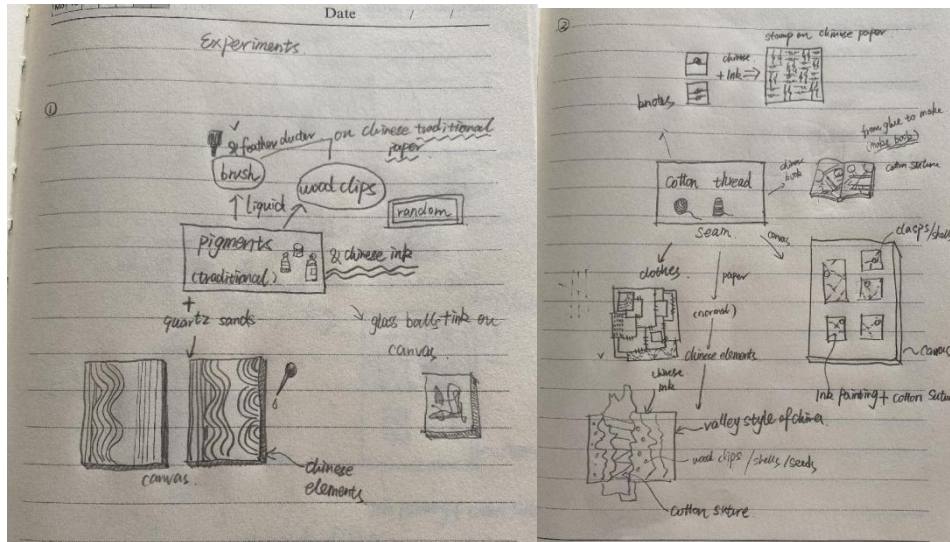 Date / /
Experiments
①
& feather duster
on chinese traditional
paper
brush
wood clips
liquid
random
pigments
(traditional)
& chinese ink
+
quartz sands
glass balls + ink on
canvas
canvas
chinese
elements
②
stamp on chinese paper
chinese
+ Ink ⇒
knotes
from glue to make
(make book)
cotton thread
chinese
book
cotton suture
seam
canvas
clasps/shells
clothes
paper
(normal)
chinese elements
chinese
ink
canvas
Ink painting + cotton suture
valley style of china
wood clips / shells / seeds
cotton suture